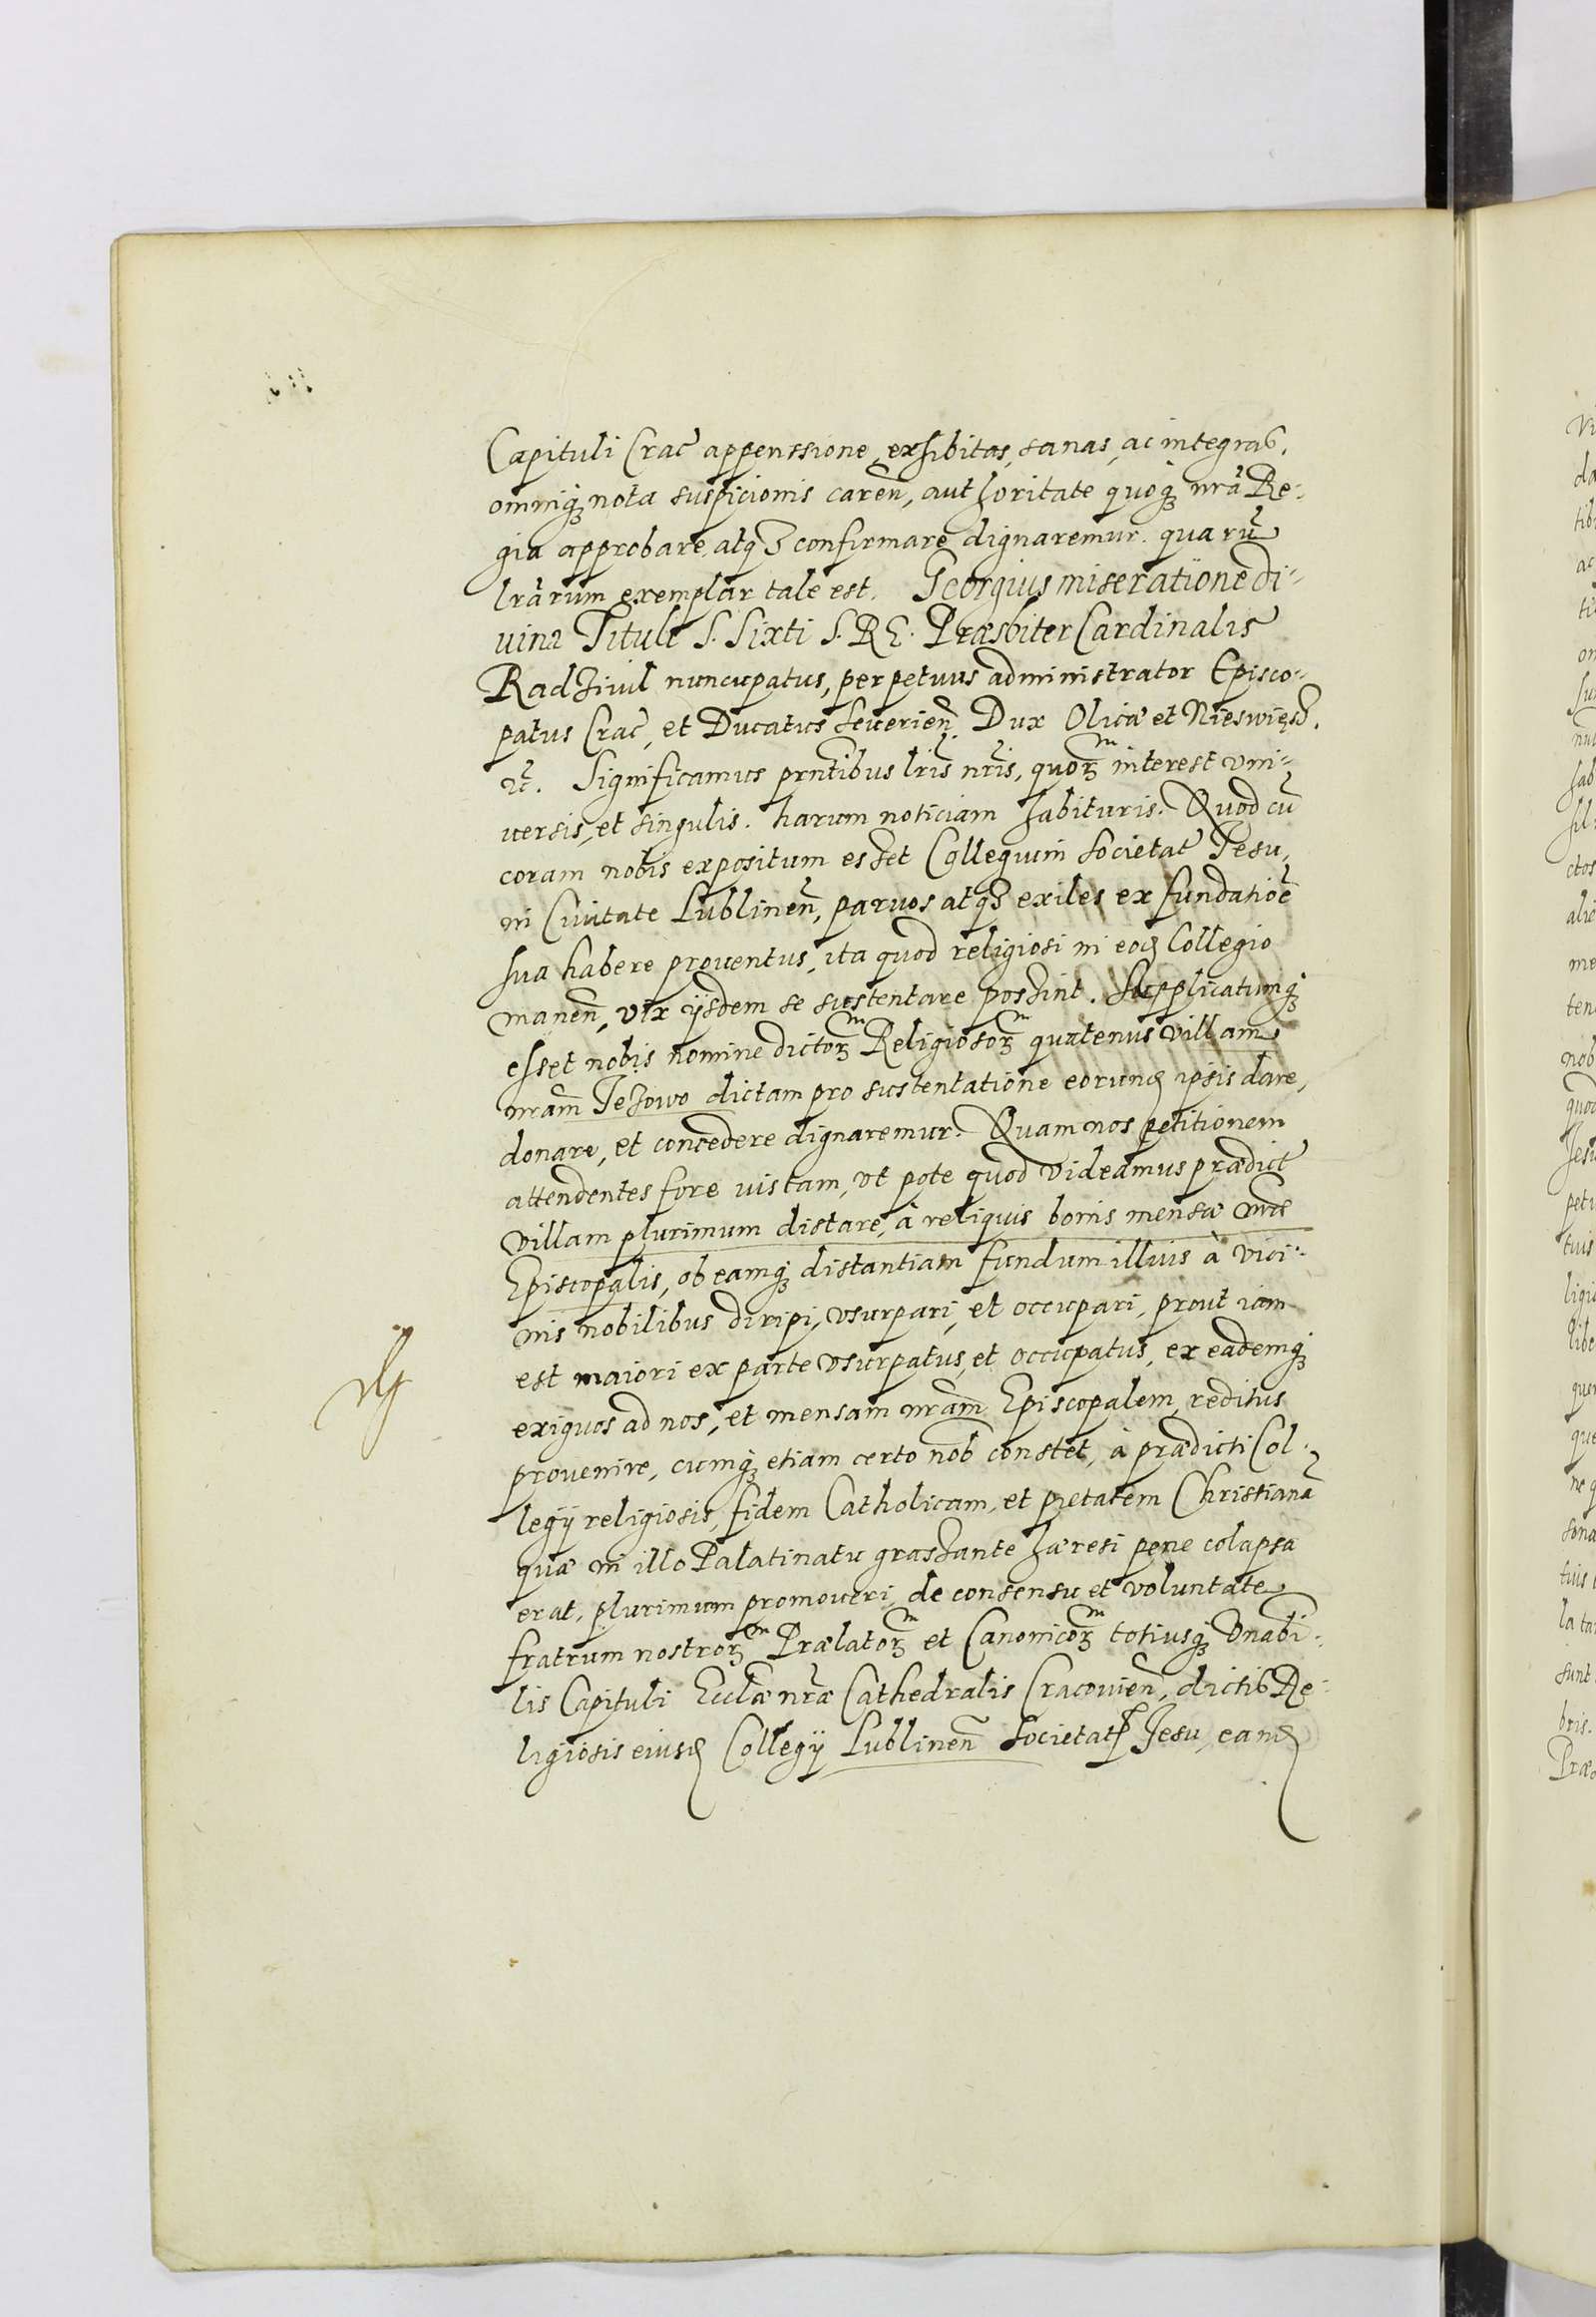 Capituli Crac̃ appenssione, exhibitas, sanas, ac integras,
omniq̃ nota suspicionis careñ, authoritate quoq̃ nrã Re-
gia approbare, atq̃ confirmare dignaremur. quarũ
lrãrum exemplar tale est. Georgius miseratione di-
uina Tituli S. Sixti S. R E. Præsbiter Cardinalis
Radziuil nuncupatus, perpetuus administrator Episco-
patus Crac̃, et Ducatus Seuerieñ. Dux Olicæ et Nieswięsz.
Significamus prñtibus lris̃ nris̃, quorum interest vni-
uersis, et singulis. harum noticiam habituris. Quod cũ
coram nobis expositum esset Collegium Societat Jesu,
in Ciuitate Lublineñ, paruos atq̃ exiles ex fundatiõe
sua habere prouentus, ita quod religiosi in eod Collegio
maneñ, vix ijsdem se sustentare possint. Supplicatumq̃
esset nobis nomine dictorum Religiosorum quatenus Villam
nrãm Jezowo dictam pro sustentatione eorund ipsis dare,
donare, et concedere dignaremur. Quam nos petitionem
attendentes fore iustam, vt pote quod videamus prædict
villam plurimum distare, à reliquis bonis mensæ nræ
Episcopalis, ob eamq̃ distantiam fundum illius à vici-
nis nobilibus diripi, vsurpari, et occupari, prout iam
est maiori ex parte vsurpatus, et occupatus, ex eademq̃
exiguos ad nos, et mensam nrãm Episcopalem, reditus
prouenire, cumq̃ etiam certo nob̃ constet, à prædicti Col-
legij religiosis, fidem Catholicam, et pietatem Christianã
quæ in illo Palatinatu grassante hæresi pene colapsa
erat, plurimum promoueri, de consensu et voluntate
fratrum nostrorum Prælatorum et Canonicorum totiusq̃ Vnabi-
lis Capituli Ecclæ nræ Cathedralis Cracouieñ, dictis Re-
ligiosis eiusd Collegij Lublineñ Societat Jesu, eand